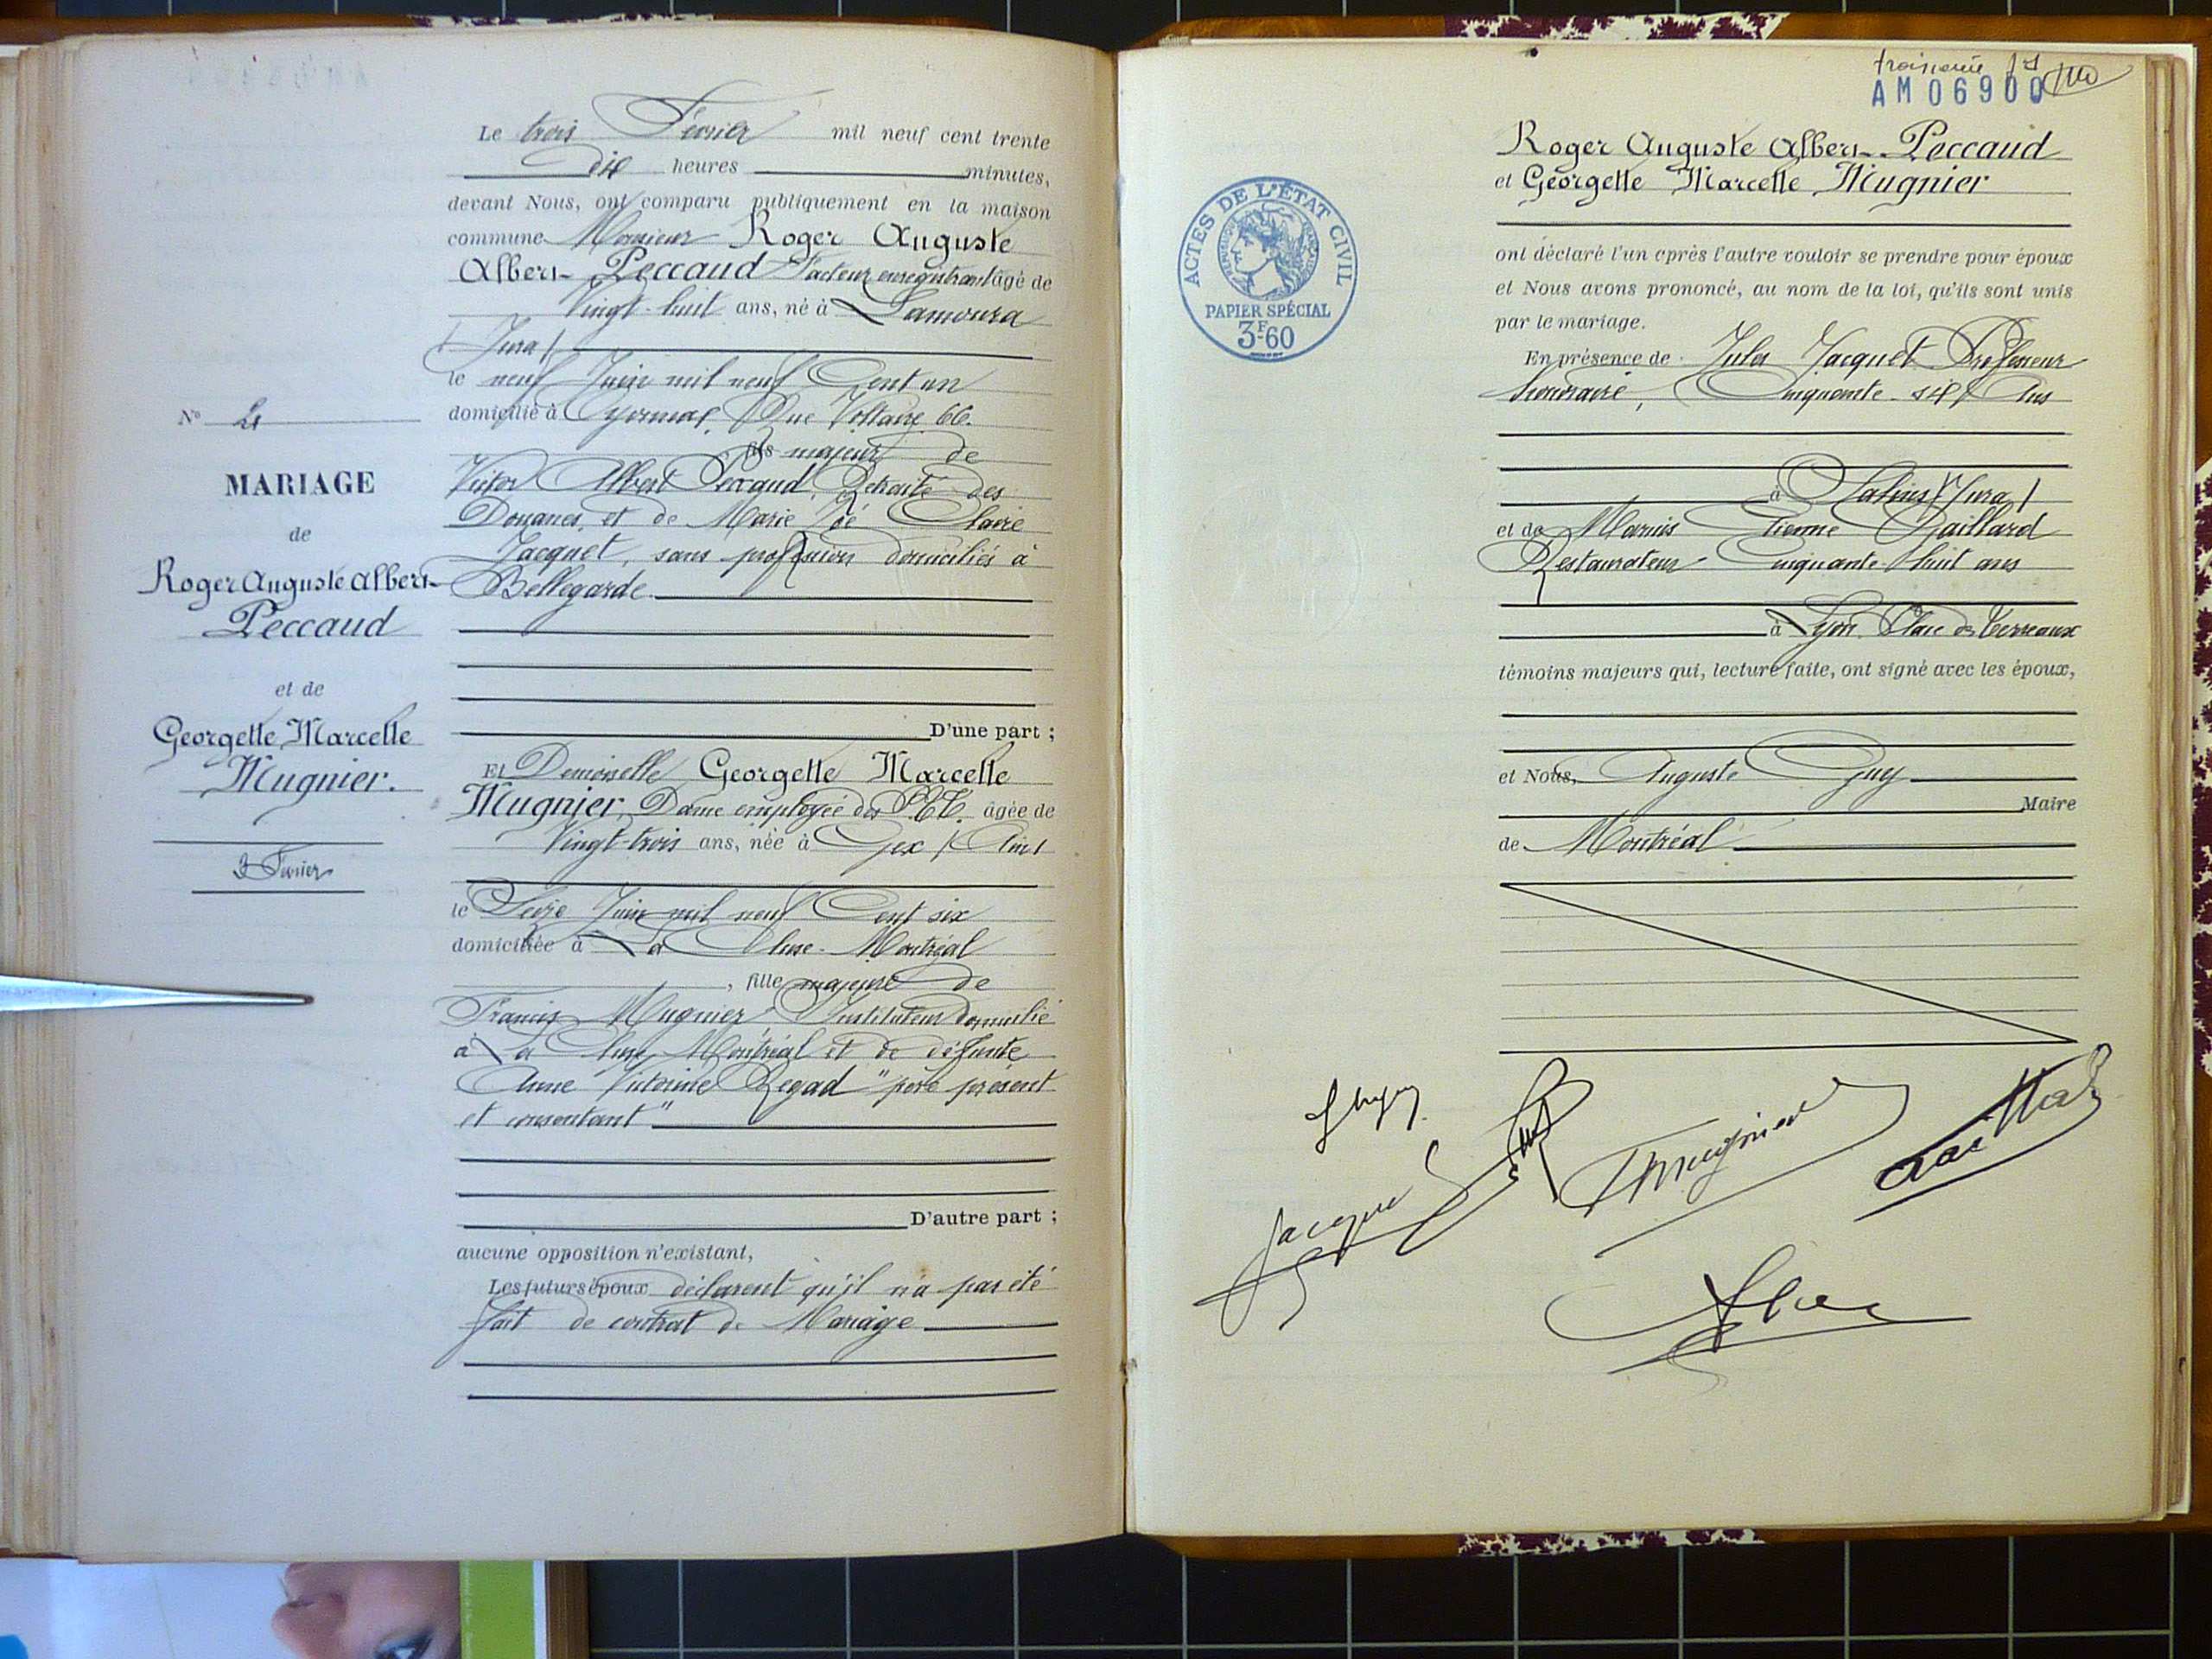 Le trois Février mil neuf cent trente
dix heures minutes,
devant Nous, ont comparu publiquement en la maison
commune Monsieur Roger Auguste
Albert Peccaud Facteur enregistrant âgé de
Vingt-huit ans, né à Lamoura
(Jura)
le neuf Juin mil neuf Cent un
domicilié à Oyonnax, Rue Voltaire 66.
fils majeur de
Victor Albert Peccaud, Retraité des
Douanes, et de Marie Zoé Claire
Jacquet, sans profession domiciliés à
Bellegarde.
D'une part ;
Et Demoiselle Georgette Marcelle
Mugnier, Dame employée des P.T.T. âgée de
Vingt-trois ans, née à Gex (Ain)
le Seize Juin mil neuf Cent six
domiciliée à La Cluse-Montréal
, fille majeure de
Francis Mugnier Instituteur domicilié
à La Cluse Montréal et de défunte
Anne Victorine Regad "père présent
et consentant"
D'autre part ;
aucune opposition n'existant,
Les futurs époux déclarent qu'il n'a pas été
fait de contrat de Mariage
N° 2
MARIAGE
de
Roger Auguste Albert
Peccaud
et de
Georgette Marcelle
Mugnier.
3 Février
troisième
AM 06900
ACTES DE L'ÉTAT CIVIL
PAPIER SPÉCIAL
3F60
Roger Auguste Albert Peccaud
et Georgette Marcelle Mugnier
ont déclaré l'un après l'autre vouloir se prendre pour époux
et Nous avons prononcé, au nom de la loi, qu'ils sont unis
par le mariage.
En présence de Jules Jacquet Professeur
honoraire, Cinquante-six Ans
à Salins (Jura)
et de Marius Etienne Gaillard
Restaurateur Cinquante-huit ans
à Lyon, Place des Terreaux
témoins majeurs qui, lecture faite, ont signé avec les époux,
et Nous, Auguste Guy
Maire
de Montréal
Jacquet
Mugnier
Gaillard